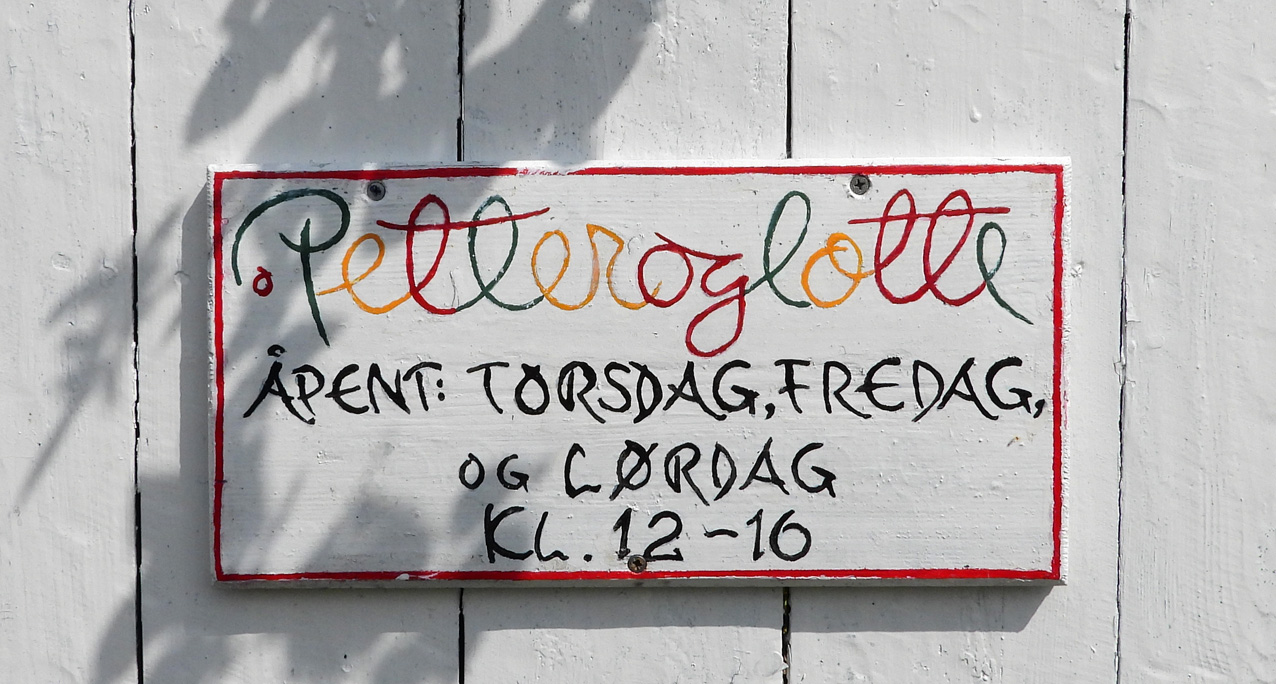 Petteroglotte
ÅPENT: TORSDAG, FREDAG,
OG LØRDAG
KL. 12-16